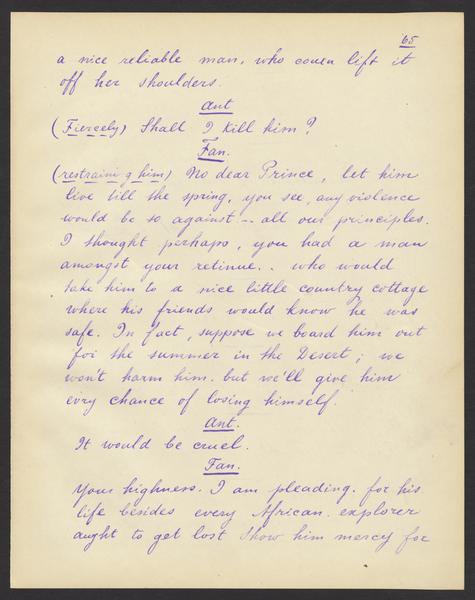 65
a nice reliable man, who couen lift it
off her shoulders.
Ant
(Fiercely) Shall I kill him?
Fan.
(restraining him) No dear Prince, let him
live till the spring, you see, any violence
would be so against -- all our principles.
I thought perhaps, you had a man
amongst your retinue.. who would
take him to a nice little country cottage
where his friends would know he was
safe. In fact, suppose we board him out
for the summer in the Desert; we
won't harm him. but we'll give him
evry chance of losing himself.
Ant.
It would be cruel.
Fan.
Your highness. I am pleading. for his
life besides every African explorer
aught to get lost Show him mercy for